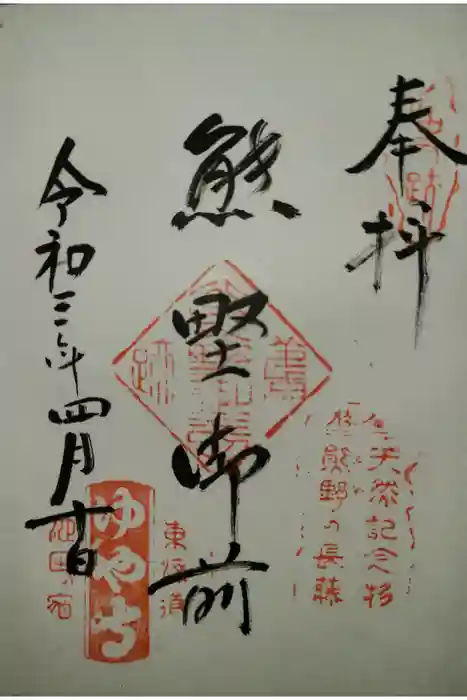 奉拝
熊野御前
令和三年四月十日
天然記念物
熊野の長藤
東海道
池田の宿
ゆや寺